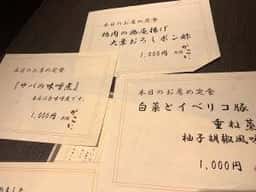 本日のお薦め定食
鶏肉の梅庵揚げ
大葉おろしポン酢
1,000円
本日のお薦め定食
『サバの味噌煮』
1,000円
本日のお薦め定食
白菜とイベリコ豚
重ね蒸
柚子胡椒風味
1,000円